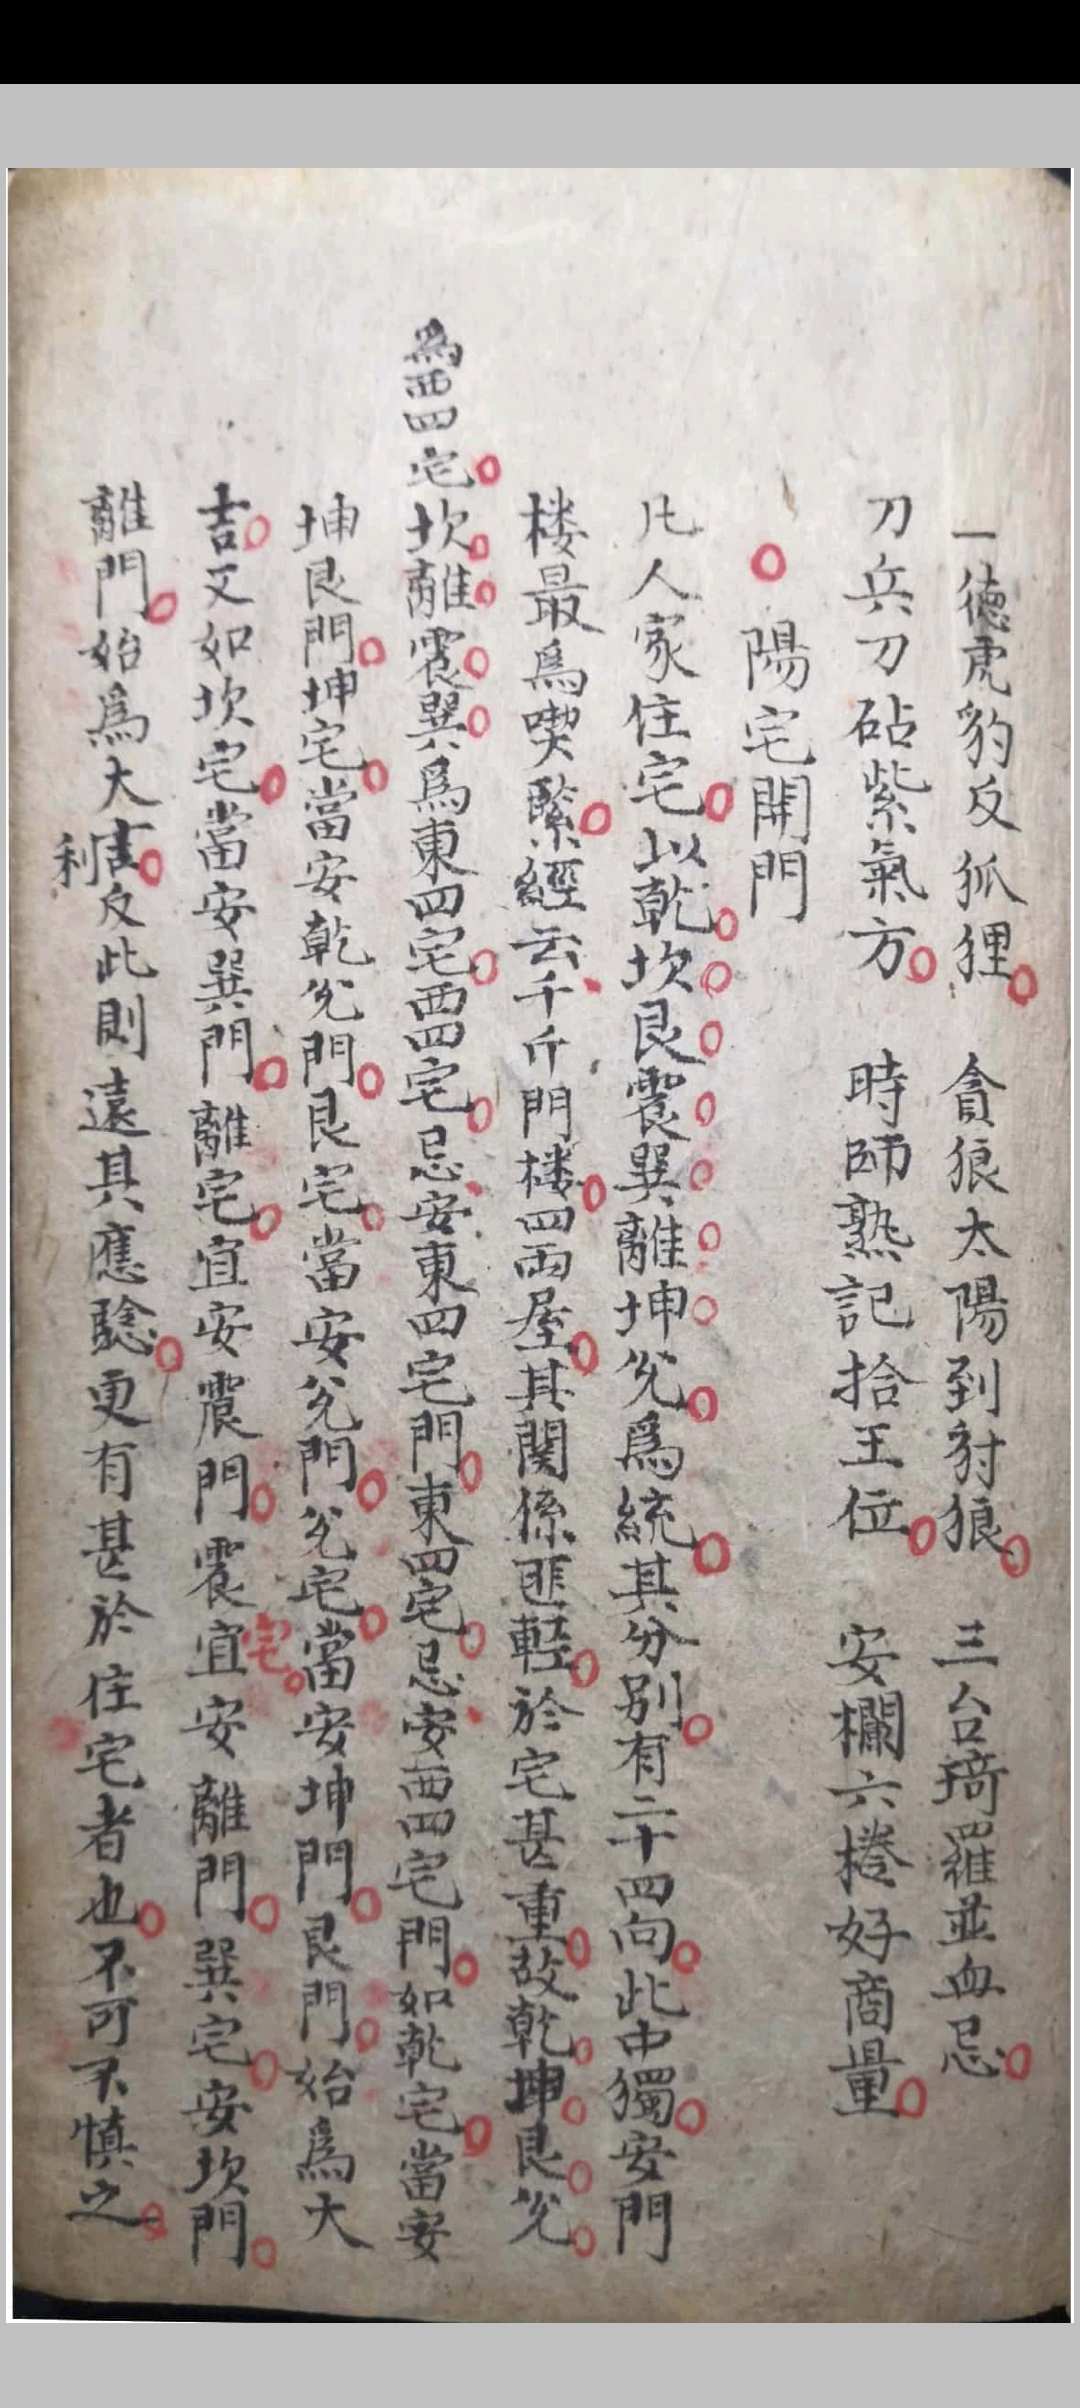 一德虎豹反狐狸 貪狼太陽到豺狼 三台琦羅並血忌
刀兵刀砧紫氣方 時師熟記拾王位 安欄六捲好商量
陽宅開門
凡人家住宅以乾坎艮震巽離坤兌為統其分别有二十四向此中獨安門
楼最爲喫緊經云千斤門楼四兩屋其関係匪輕於宅甚重故乾坤艮兌
爲西四宅坎離震巽爲東四宅西四宅忌安東四宅門東四宅忌安西四宅門如乾宅當安
坤艮門坤宅當安乾兌門艮宅當安兌門兌宅當安坤門艮門始爲大
吉又如坎宅當安巽門離宅宜安震門震宅宜安離門巽宅安坎門
離門始爲大吉利反此則遠其應驗更有甚於住宅者也不可不慎之